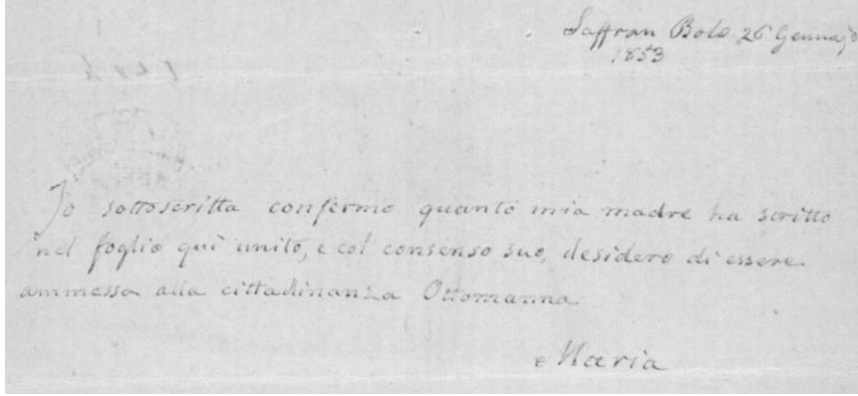 Saffran Bolo 26 Gennajo
1853
Jo sottoscritta confermo quanto mia madre ha scritto
nel foglio quì unito, e col consenso suo, desidero di essere
ammessa alla cittadinanza Ottomanna
Maria